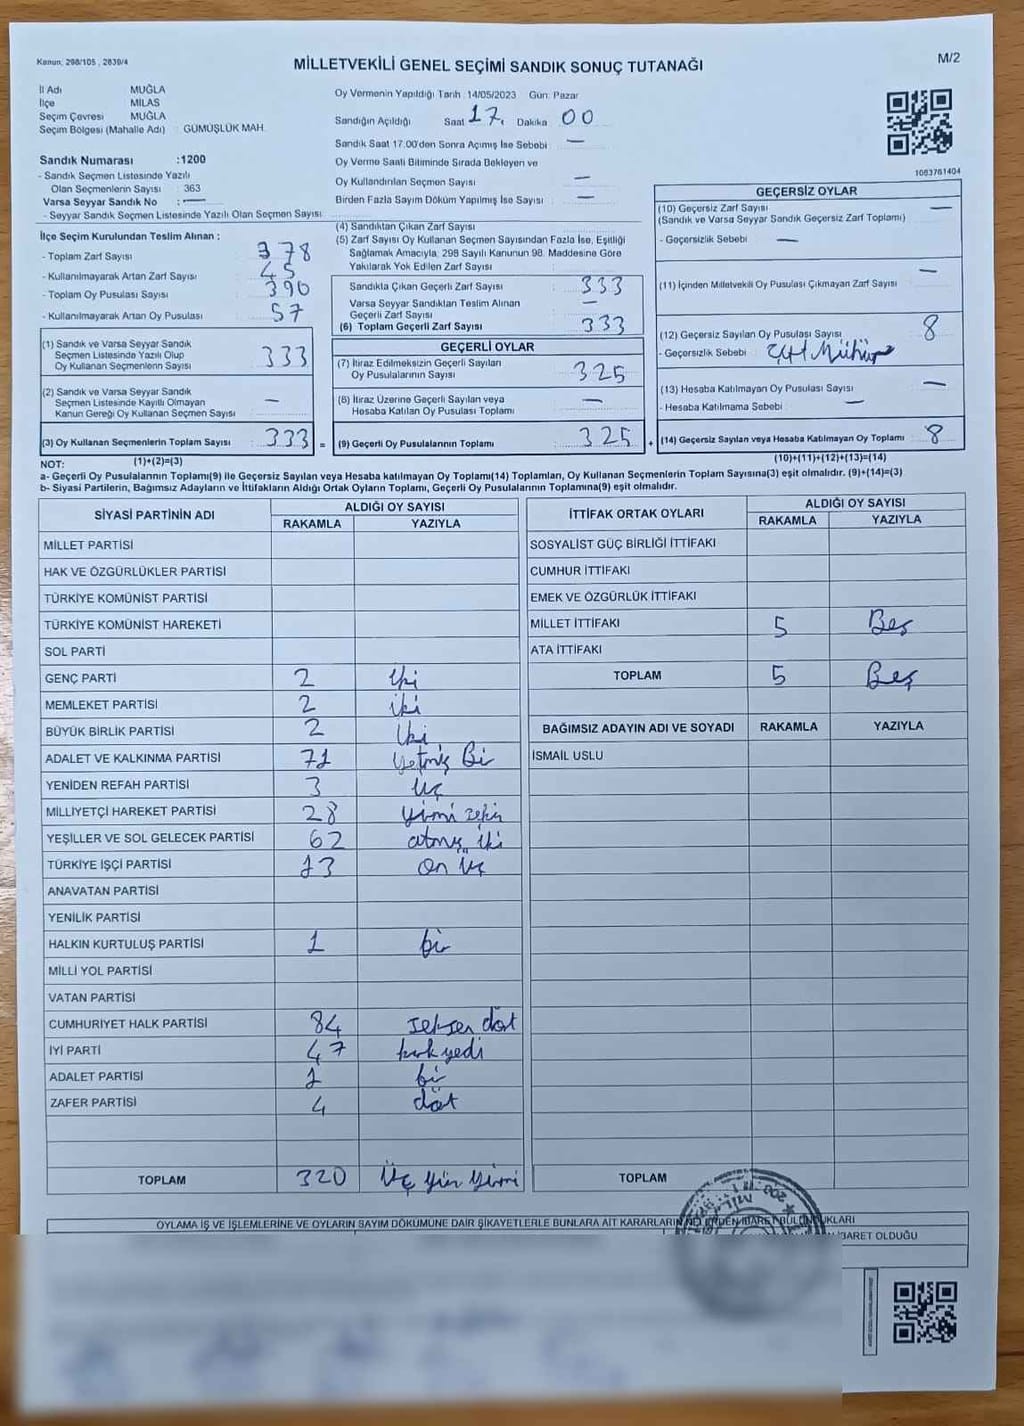 Kanun, 298/105 , 2839/4
MİLLETVEKİLİ GENEL SEÇİMİ SANDIK SONUÇ TUTANAĞI
M/2
İl Adı MUĞLA
İlçe MİLAS
Seçim Çevresi MUĞLA
Seçim Bölgesi (Mahalle Adı) : GÜMÜŞLÜK MAH.
Sandık Numarası :1200
- Sandık Seçmen Listesinde Yazılı
Olan Seçmenlerin Sayısı : 363
Varsa Seyyar Sandık No : —
- Seyyar Sandık Seçmen Listesinde Yazılı Olan Seçmen Sayısı
Oy Vermenin Yapıldığı Tarih :14/05/2023 Gün: Pazar
Sandığın Açıldığı Saat 17. Dakika 00
Sandık Saat 17.00'den Sonra Açımış İse Sebebi —
Oy Verme Saati Bitiminde Sırada Bekleyen ve
Oy Kullandırılan Seçmen Sayısı —
Birden Fazla Sayım Döküm Yapılmış İse Sayısı —
1083761404
İlçe Seçim Kurulundan Teslim Alınan :
- Toplam Zarf Sayısı 378
- Kullanılmayarak Artan Zarf Sayısı 45
- Toplam Oy Pusulası Sayısı 390
- Kullanılmayarak Artan Oy Pusulası 57
(1) Sandık ve Varsa Seyyar Sandık
Seçmen Listesinde Yazılı Olup
Oy Kullanan Seçmenlerin Sayısı 333
(2) Sandık ve Varsa Seyyar Sandık
Seçmen Listesinde Kayıtlı Olmayan
Kanun Gereği Oy Kullanan Seçmen Sayısı —
(3) Oy Kullanan Seçmenlerin Toplam Sayısı : 333 =
(1)+(2)=(3)
(4) Sandıktan Çıkan Zarf Sayısı
(5) Zarf Sayısı Oy Kullanan Seçmen Sayısından Fazla İse, Eşitliği
Sağlamak Amacıyla, 298 Sayılı Kanunun 98. Maddesine Göre
Yakılarak Yok Edilen Zarf Sayısı
Sandıkla Çıkan Geçerli Zarf Sayısı : 333
Varsa Seyyar Sandıktan Teslim Alınan
Geçerli Zarf Sayısı —
(6) Toplam Geçerli Zarf Sayısı 333
GEÇERLİ OYLAR
(7) İtiraz Edilmeksizin Geçerli Sayılan
Oy Pusulalarının Sayısı 325
(8) İtiraz Üzerine Geçerli Sayılan veya
Hesaba Katılan Oy Pusulası Toplamı —
(9) Geçerli Oy Pusulalarının Toplamı 325 +
GEÇERSİZ OYLAR
(10) Geçersiz Zarf Sayısı —
(Sandık ve Varsa Seyyar Sandık Geçersiz Zarf Toplamı)
- Geçersizlik Sebebi —
(11) İçinden Milletvekili Oy Pusulası Çıkmayan Zarf Sayısı —
(12) Geçersiz Sayılan Oy Pusulası Sayısı 8
- Geçersizlik Sebebi : Çift Mühür
(13) Hesaba Katılmayan Oy Pusulası Sayısı —
- Hesaba Katılmama Sebebi —
(14) Geçersiz Sayılan veya Hesaba Katılmayan Oy Toplamı : 8
(10)+(11)+(12)+(13)=(14)
NOT:
a- Geçerli Oy Pusulalarının Toplamı(9) ile Geçersiz Sayılan veya Hesaba katılmayan Oy Toplamı(14) Toplamları, Oy Kullanan Seçmenlerin Toplam Sayısına(3) eşit olmalıdır. (9)+(14)=(3)
b- Siyasi Partilerin, Bağımsız Adayların ve İttifakların Aldığı Ortak Oyların Toplamı, Geçerli Oy Pusulalarının Toplamına(9) eşit olmalıdır.
SİYASİ PARTİNİN ADI ALDIĞI OY SAYISI
RAKAMLA YAZIYLA
MİLLET PARTİSİ
HAK VE ÖZGÜRLÜKLER PARTİSİ
TÜRKİYE KOMÜNİST PARTİSİ
TÜRKİYE KOMÜNİST HAREKETİ
SOL PARTİ
GENÇ PARTİ 2 iki
MEMLEKET PARTİSİ 2 iki
BÜYÜK BİRLİK PARTİSİ 2 iki
ADALET VE KALKINMA PARTİSİ 71 yetmiş Bir
YENİDEN REFAH PARTİSİ 3 üç
MİLLİYETÇİ HAREKET PARTİSİ 28 yirmi sekiz
YEŞİLLER VE SOL GELECEK PARTİSİ 62 atmış iki
TÜRKİYE İŞÇİ PARTİSİ 13 on üç
ANAVATAN PARTİSİ
YENİLİK PARTİSİ
HALKIN KURTULUŞ PARTİSİ 1 bir
MİLLİ YOL PARTİSİ
VATAN PARTİSİ
CUMHURİYET HALK PARTİSİ 84 seksen dört
İYİ PARTİ 47 kırk yedi
ADALET PARTİSİ 1 bir
ZAFER PARTİSİ 4 dört
TOPLAM 320 Üç yüz yirmi
İTTİFAK ORTAK OYLARI ALDIĞI OY SAYISI
RAKAMLA YAZIYLA
SOSYALİST GÜÇ BİRLİĞİ İTTİFAKI
CUMHUR İTTİFAKI
EMEK VE ÖZGÜRLÜK İTTİFAKI
MİLLET İTTİFAKI 5 Beş
ATA İTTİFAKI
TOPLAM 5 Beş
BAĞIMSIZ ADAYIN ADI VE SOYADI RAKAMLA YAZIYLA
İSMAİL USLU
TOPLAM
OYLAMA İŞ VE İŞLEMLERİNE VE OYLARIN SAYIM DÖKÜMÜNE DAİR ŞİKAYETLERLE BUNLARA AİT KARARLARIN NELERDEN İBARET BULUNDUKLARI
İBARET OLDUĞU